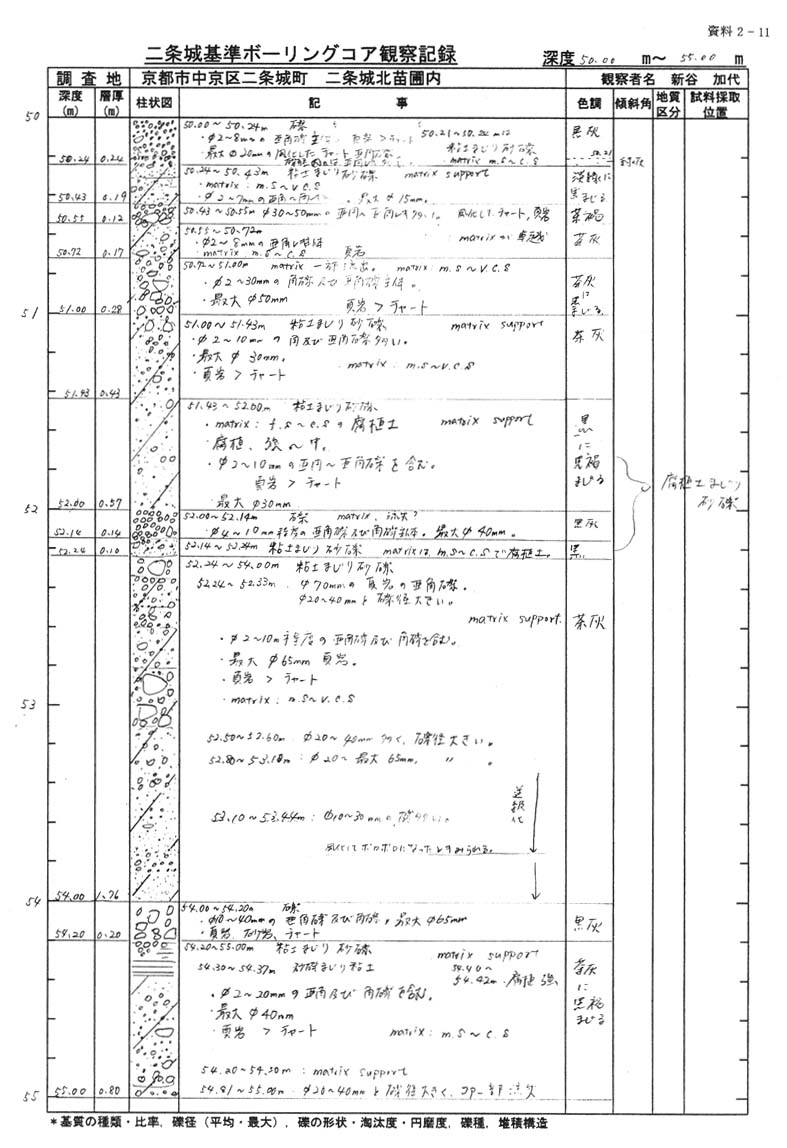 資料 2-11
二条城基準ボーリングコア観察記録 深度 50.00 m～ 55.00 m
調査地 京都市中京区二条城町 二条城北苗圃内 観察者名 新谷 加代
深度(m) 層厚(m) 柱状図 記事 色調 傾斜角 地質区分 試料採取位置
50
50.00～50.24m 礫
・φ2～8mmの亜角礫 頁岩>チャート 50.21～50.24mは 黒灰
・最大φ20mmの風化したチャート亜円礫 粘土まじり砂礫 50.21
50.24 0.24 matrix m.s～c.s
50.24～50.43m 粘土まじり砂礫 matrix support
・matrix: m.s～v.c.s
50.43 0.19 ・φ2～7mmの 最大φ15mm。 まじる
50.55 0.12 50.43～50.55m φ30～50mmの 風化したチャート,頁岩 茶褐
50.55～50.72m
・φ2～8mmの亜角 matrixが卓越 茶灰
50.72 0.17 matrix m.s～c.s 頁岩
50.72～51.00m matrix 一部流出。 matrix: m.s～v.c.s
・φ2～30mmの角礫及び亜角礫主体。 茶灰に
・最大φ50mm まじる
51 51.00 0.28 頁岩>チャート
51.00～51.43m 粘土まじり砂礫 matrix support
・φ2～10mmの角及び亜角礫多い。 茶灰
・最大φ30mm。
・頁岩>チャート matrix: m.s～v.c.s
51.43 0.43
51.43～52.00m 粘土まじり砂礫
・matrix: f.s～c.sの腐植土 matrix support
・腐植、強～中。 黒に黒褐まじる
・φ2～10mmの亜円～亜角礫を含む。
頁岩>チャート 腐植土まじり砂礫
・最大φ30mm
52 52.00 0.57
52.00～52.14m 礫 matrix、流失? 黒灰
52.14 0.14 ・φ4～10mm程度の亜角礫及び角礫主体。最大φ40mm。
52.24 0.10 52.14～52.24m 粘土まじり砂礫 matrixは、m.s～c.sで腐植土。 黒
52.24～54.00m 粘土まじり砂礫
52.24～52.33m. φ70mmの頁岩の亜角礫。
φ20～40mmと礫径大きい。
matrix support. 茶灰
・φ2～10mm程度の亜角礫及び角礫を含む。
・最大φ65mm 頁岩。
・頁岩>チャート
53
・matrix: m.s～v.c.s
52.50～52.60m φ20～40mm多く、礫径大きい。
52.80～53.10m: φ20～最大65mm, 〃 。
逆級化
53.10～53.44m: φ10～30mmの礫多い。
風化してボロボロになったとすみられる。
54 54.00 1.76
54.00～54.20m 礫
・φ10～40mmの亜角礫及び角礫,最大φ65mm 黒灰
54.20 0.20 ・頁岩、砂岩、チャート
54.20～55.00m 粘土まじり砂礫 matrix support
54.30～54.37m 砂礫まじり粘土 54.40～54.42m 腐植 強、 茶灰に黒褐まじる
・φ2～20mmの亜角及び角礫を含む。
・最大φ40mm
・頁岩>チャート matrix: m.s～c.s
54.20～54.30m: matrix support
55 55.00 0.80 54.81～55.00m. φ20～40mmと礫径大きく、コア一部流失
*基質の種類・比率,礫径(平均・最大),礫の形状・淘汰度・円磨度,礫種,堆積構造